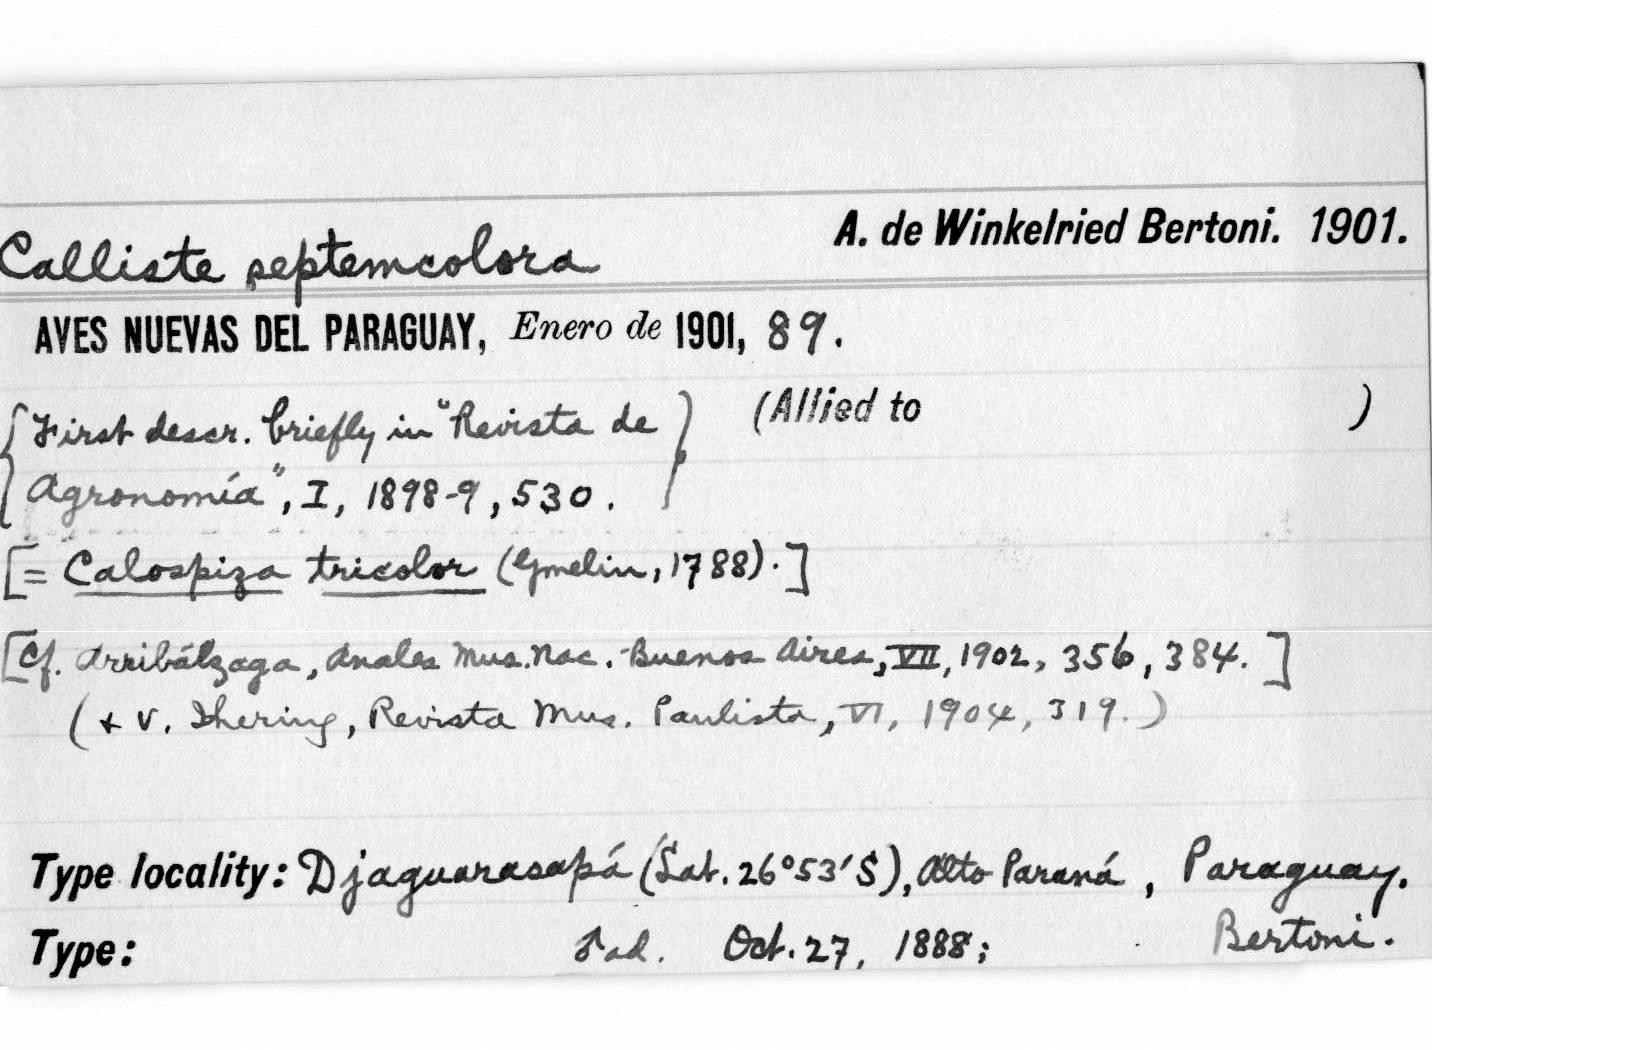 A. de Winkelried Bertoni. 1901.
Calliste septemcolora
AVES NUEVAS DEL PARAGUAY, Enero de 1901, 89.
{First descr. briefly in "Revista de (Allied to )
Agronomía", I, 1898-9, 530.}
[= Calospiza tricolor (Gmelin, 1788).]
[Cf. Arribálzaga, Anales Mus. Nac. Buenos Aires, VII, 1902, 356, 384.]
(+ v. Ihering, Revista Mus. Paulista, VI, 1904, 319.)
Type locality: Djaguarasapá (Lat. 26°53'S), Alto Paraná, Paraguay.
Type: ♂ ad. Oct. 27, 1888; Bertoni.